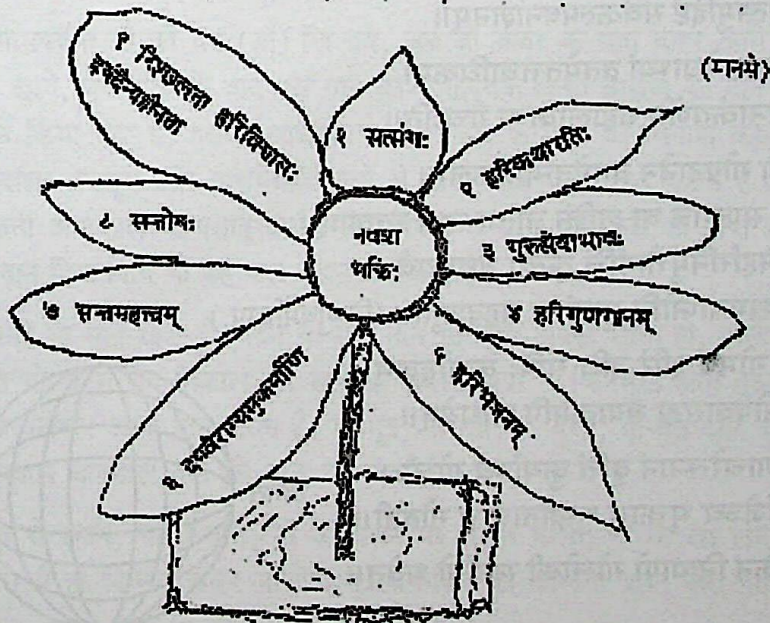 (मानसे)
नवधा
भक्तिः
१ सत्संगः
२ हरिकथारतिः
३ गुरुसेवाभावः
४ हरिगुणगानम्
५ हरिभजनम्
६ सुकर्माणि
७ सन्तमहत्त्वम्
८ सन्तोषः
९ निश्छलता हरिविश्वासः